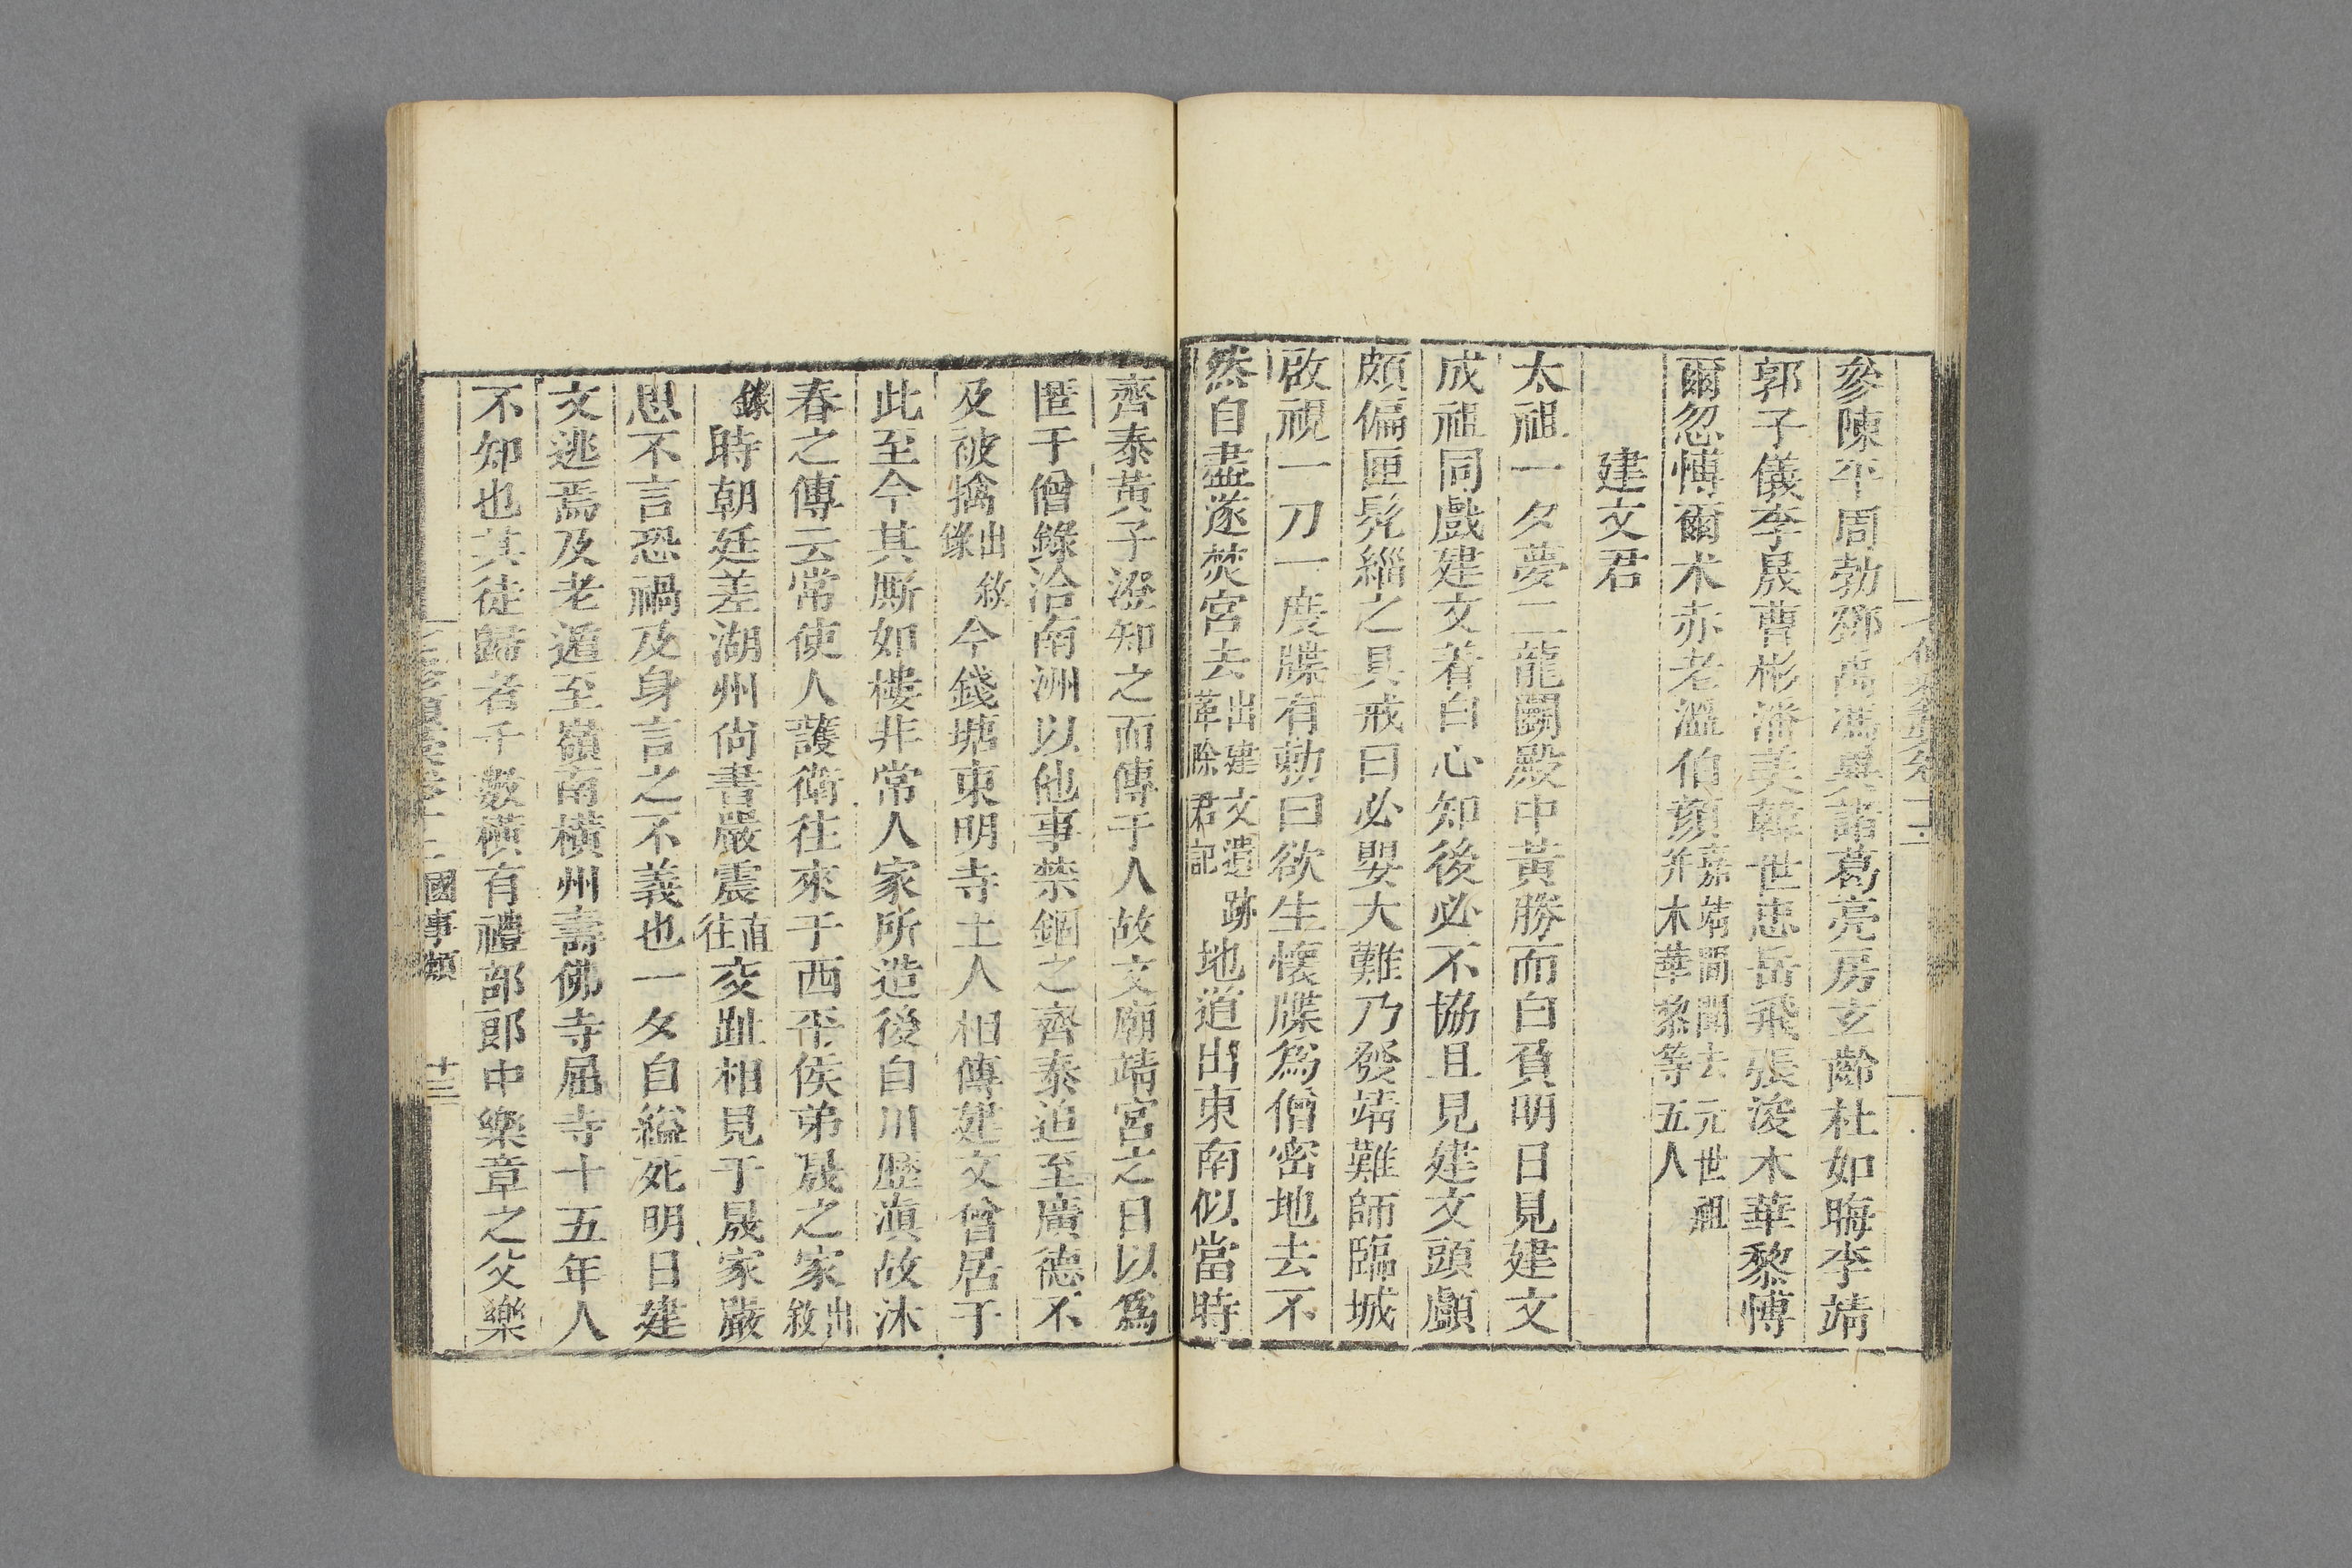 參陳平周勃鄧禹馮異諸葛亮房玄齡杜如晦李靖
郭子儀李晟曹彬潘美韓世忠岳飛張浚木華黎博
爾忽博爾术赤老溫伯顏嘉靖間聞去元世祖并木華黎等五人
建文君
太祖一夕夢二龍鬭殿中黃勝而白負明日見建文
成祖同戲建文着白心知後必不協且見建文頭顱
頗偏匣髡緇之具戒曰必嬰大難乃發靖難師臨城
啟視一刀一度牒有勅曰欲生懷牒為僧密地去不
然自盡遂焚宮去出建文遺跡革除君記地道出東南似當時
齊泰黃子澄知之而傳于人故文廟靖宮之日以爲
匿于僧錄洽南洲以他事禁錮之齊泰追至廣德不
及被擒出敘錄今錢塘東明寺土人相傳建文曾居于
此至今其厮如樓非常人家所造後自川歷滇故沐
春之傳云常使人護衛往來于西平侯弟晟之家出敘
錄時朝廷差湖州尙書嚴震直往交趾相見于晟家嚴
思不言恐禍及身言之不義也一夕自縊死明日建
文逃焉及老遁至嶺南橫州壽佛寺居寺十五年人
不知也其徒歸者千數橫有禮部郎中樂章之父樂
七修類稾卷十二國事類 廿三